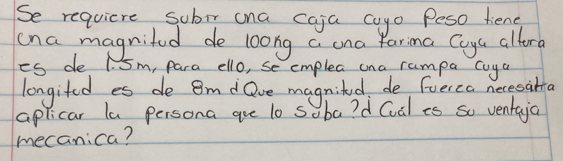 Se requiere subir una caja cuyo Peso tiene
una magnitud de 100kg a una tarima Cuya altura
es de 1.5m, para ello, se emplea una rampa cuya
longitud es de 8m d Que magnitud de fuerza necesitara
aplicar la persona que lo suba? d Cuál es su ventaja
mecanica?